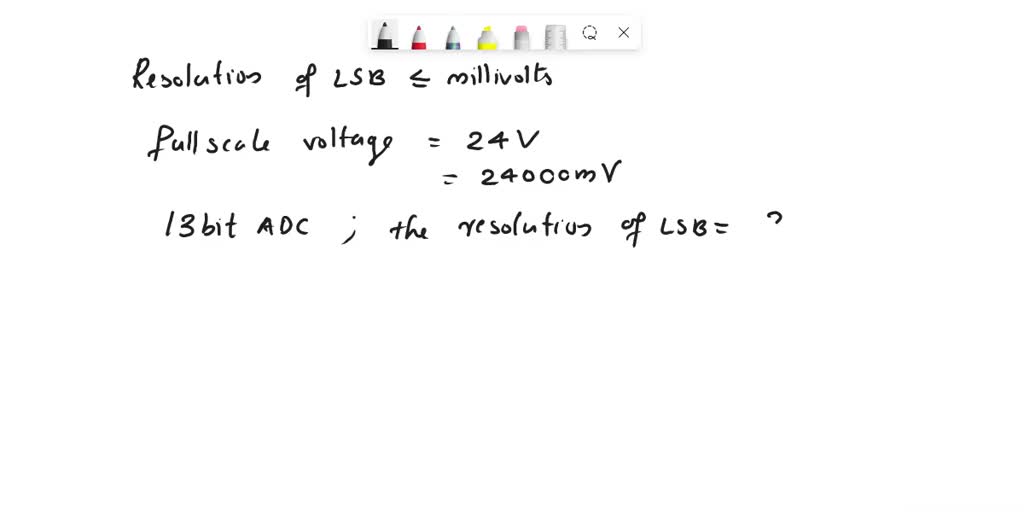 Resolution of LSB ≤ millivolts
full scale voltage = 24V
= 24000mV
13bit ADC ; the resolution of LSB = ?